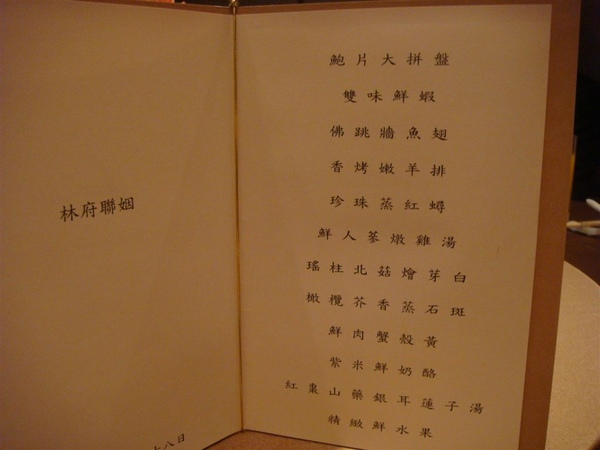 林府聯姻
十八日
鮑片大拼盤
雙味鮮蝦
佛跳牆魚翅
香烤嫩羊排
珍珠蒸紅蟳
鮮人蔘燉雞湯
瑤柱北菇燴芽白
橄欖芥香蒸石斑
鮮肉蟹殼黃
紫米鮮奶酪
紅棗山藥銀耳蓮子湯
精緻鮮水果